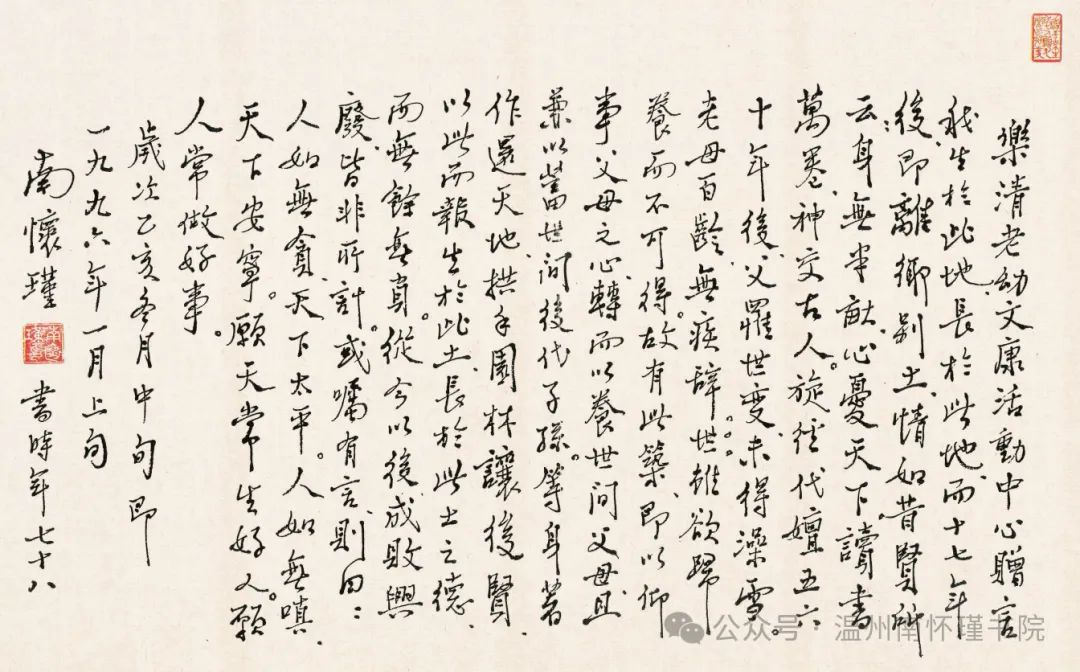 樂清老幼文康活動中心贈言
我生於此地、長於此地、而十七年
後、即離鄉別土、情如昔賢所
云、身無半畝、心憂天下。讀書
萬卷、神交古人。旋經代嬗五六
十年後、父罹世變、未得澡雪。
老母百齡、無疾辭世。雖欲歸
養而不可得。故有此築、即以仰
事父母之心、轉而以養世間父母、且
兼以蓄世間後代子孫。等身著
作還天地、拱手園林讓後賢、
以此而報生於此土、長於此土之德、
而無餘無負。從今以後、成敗興
廢、皆非所計。或囑有言、則曰：
人如無貪、天下太平。人如無嗔、
天下安寧。願天常生好人。願
人常做好事。
歲次乙亥冬月中旬即
一九九六年一月上旬
南懷瑾 書時年七十八
公众号·温州南怀瑾书院